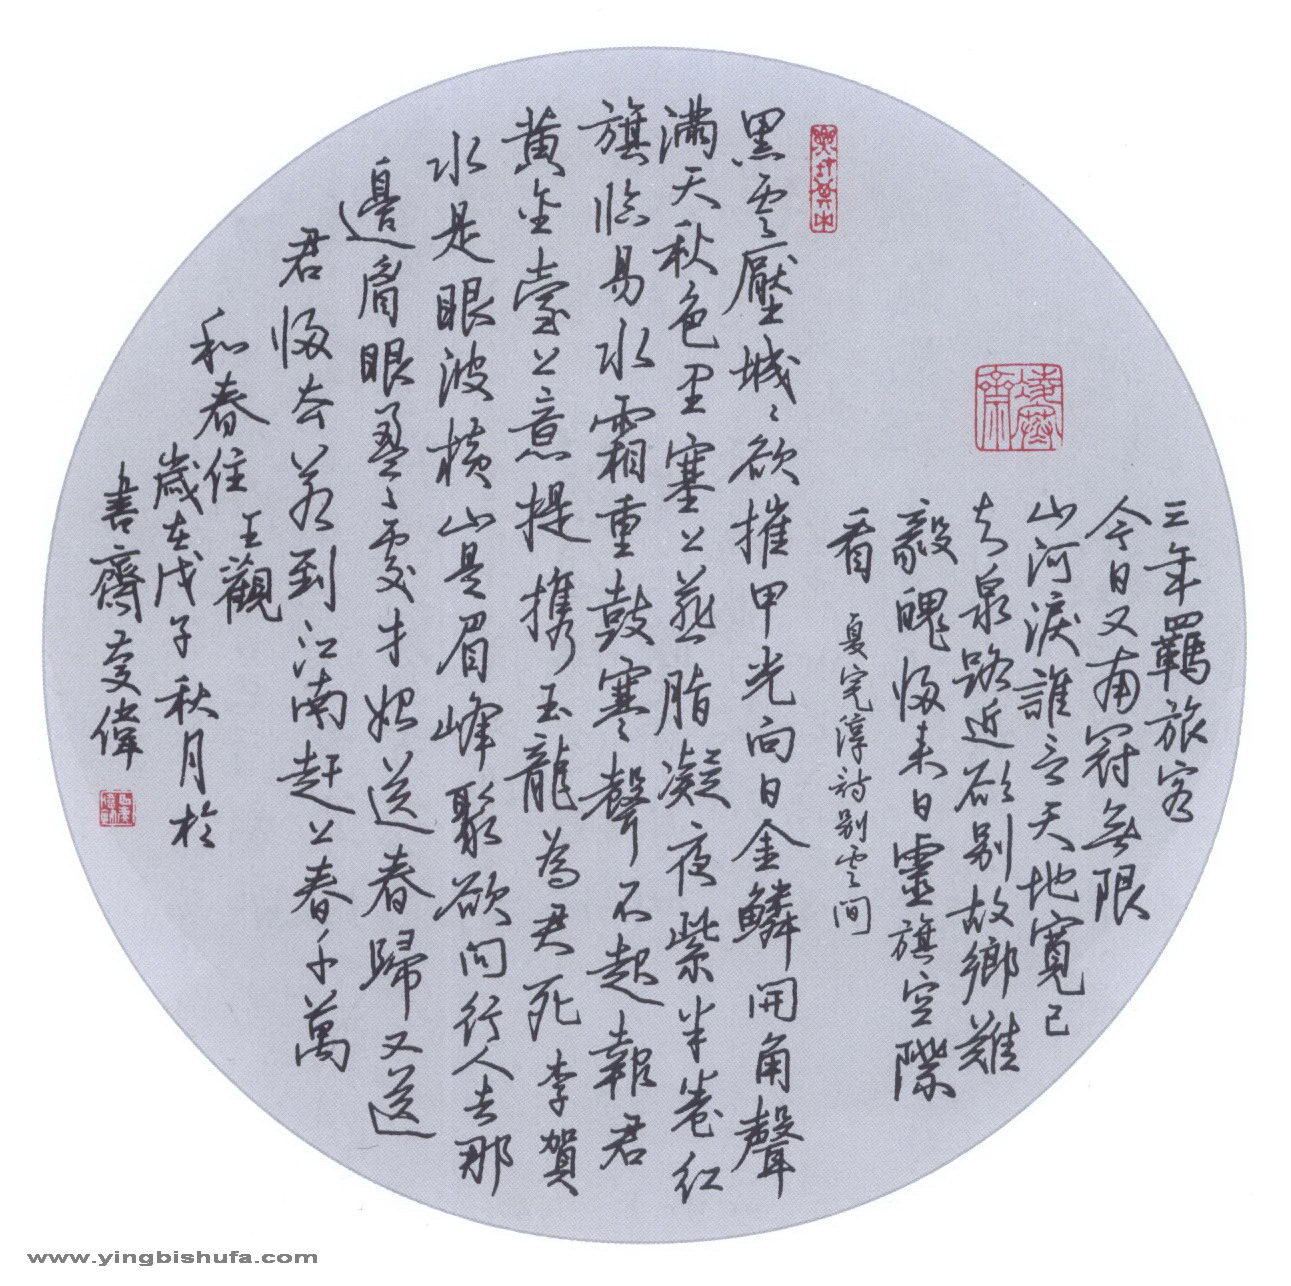 三年羈旅客
今日又南冠無限
山河淚誰言天地寬已
知泉路近欲別故鄉難
毅魄歸來日靈旗空際
看 夏完淳詩別雲間
黑雲壓城々欲摧甲光向日金鱗開角聲
滿天秋色里塞上燕脂凝夜紫半卷紅
旗臨易水霜重鼓寒聲不起報君
黃金臺上意提攜玉龍為君死李賀
水是眼波橫山是眉峰聚欲問行人去那
邊眉眼盈々處才始送春歸又送
君歸去若到江南趕上春千萬
和春住 王觀
歲在戊子秋月於
書齋 偉
www.yingbishufa.com